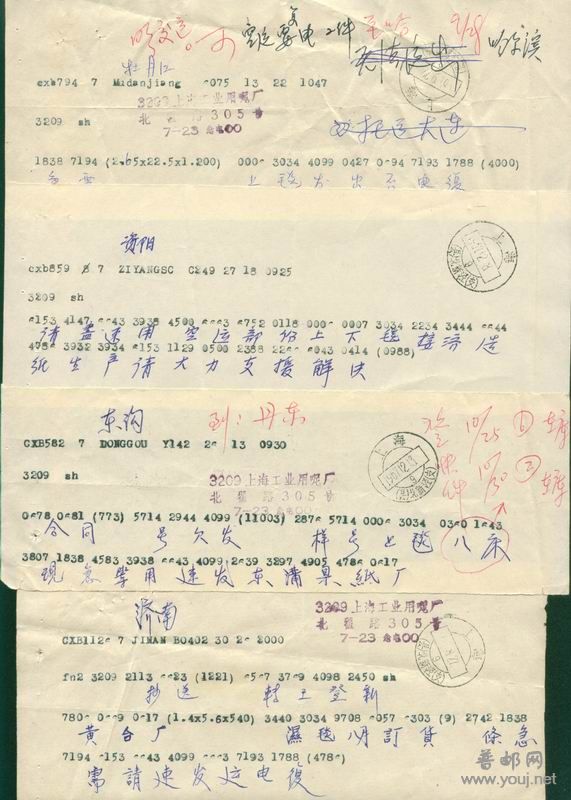 空运要电 2件
哈尔滨
牡丹江
cxb794 7 Mudanjiang 6075 13 22 1047
3209 上海工业用呢厂
北 翟 路 305 号
3209 sh
7-23
托运大连
1838 7194 (2.65x22.5x1.200) 0006 3034 4099 0427 0694 7193 1788 (4000)
条 需 上 毯 发 出 否 电 復
资阳
上海
cxb859 8 7 ZIYANGSC C249 27 18 0925
3209 sh
6153 4147 6643 3938 4500 6663 6752 0118 0006 0007 3034 2234 3444 6644
请 尽 速 用 空 运 部 份 上 下 毯 接 济 造
4786 3932 3934 6153 1129 0500 2388 2266 6043 0414 (0988)
纸 生 产 请 大 力 支 援 解 决
东沟
到：丹东
CXB582 7 DONGGOU Y142 26 13 0930
上海
3209 sh
3209 上海工业用呢厂
北 翟 路 305 号
7-23
0678 0681 (773) 5714 2944 4099 (11003) 2876 5714 0006 3034 0360 1643
合 同 号 欠 发 样 号 上 毯 八 床
3807 1838 4583 3938 6643 4099 2639 3297 4905 4786 0617
现 急 等 用 速 发 东 沟 具 紙 厂
济南
3209 上海工业用呢厂
北 翟 路 305 号
7-23
CXB1126 7 JINAN B0402 30 26 2000
fu2 3209 2113 6623 (1221) 6567 3769 4098 2450 sh
抄 送 转 王 登 新
7806 0669 0617 (1.4x5.6x540) 3440 3034 9708 6057 6303 (9) 2742 1838
黄 台 厂 濕 毯 八月 訂 貨 條 急
7194 6153 6643 4099 6663 7193 1788 (4786)
需 請 速 发 运 电 復
普邮网
www.youj.net